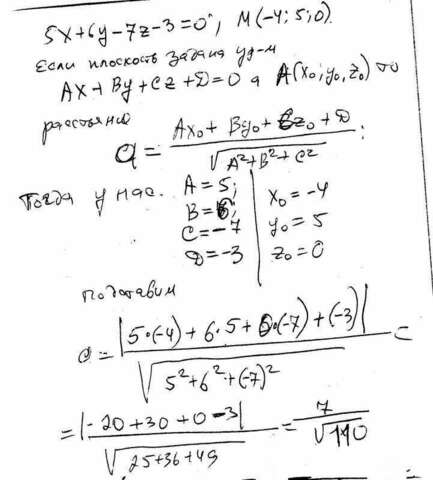 5x+6y-7z-3=0; M(-4; 5; 0).
Если плоскость задана ур-м
Ax+By+Cz+D=0 а A(x₀; y₀, z₀) то
расстояние
d = (Ax₀ + By₀ + Cz₀ + D) / √(A²+B²+C²) ;
Тогда у нас. A=5; x₀=-4
B=6; y₀=5
C=-7 z₀=0
D=-3
подставим
d = |5·(-4)+6·5+0·(-7)+(-3)| / √(5²+6²+(-7)²) =
= |-20+30+0-3| / √(25+36+49) = 7 / √110